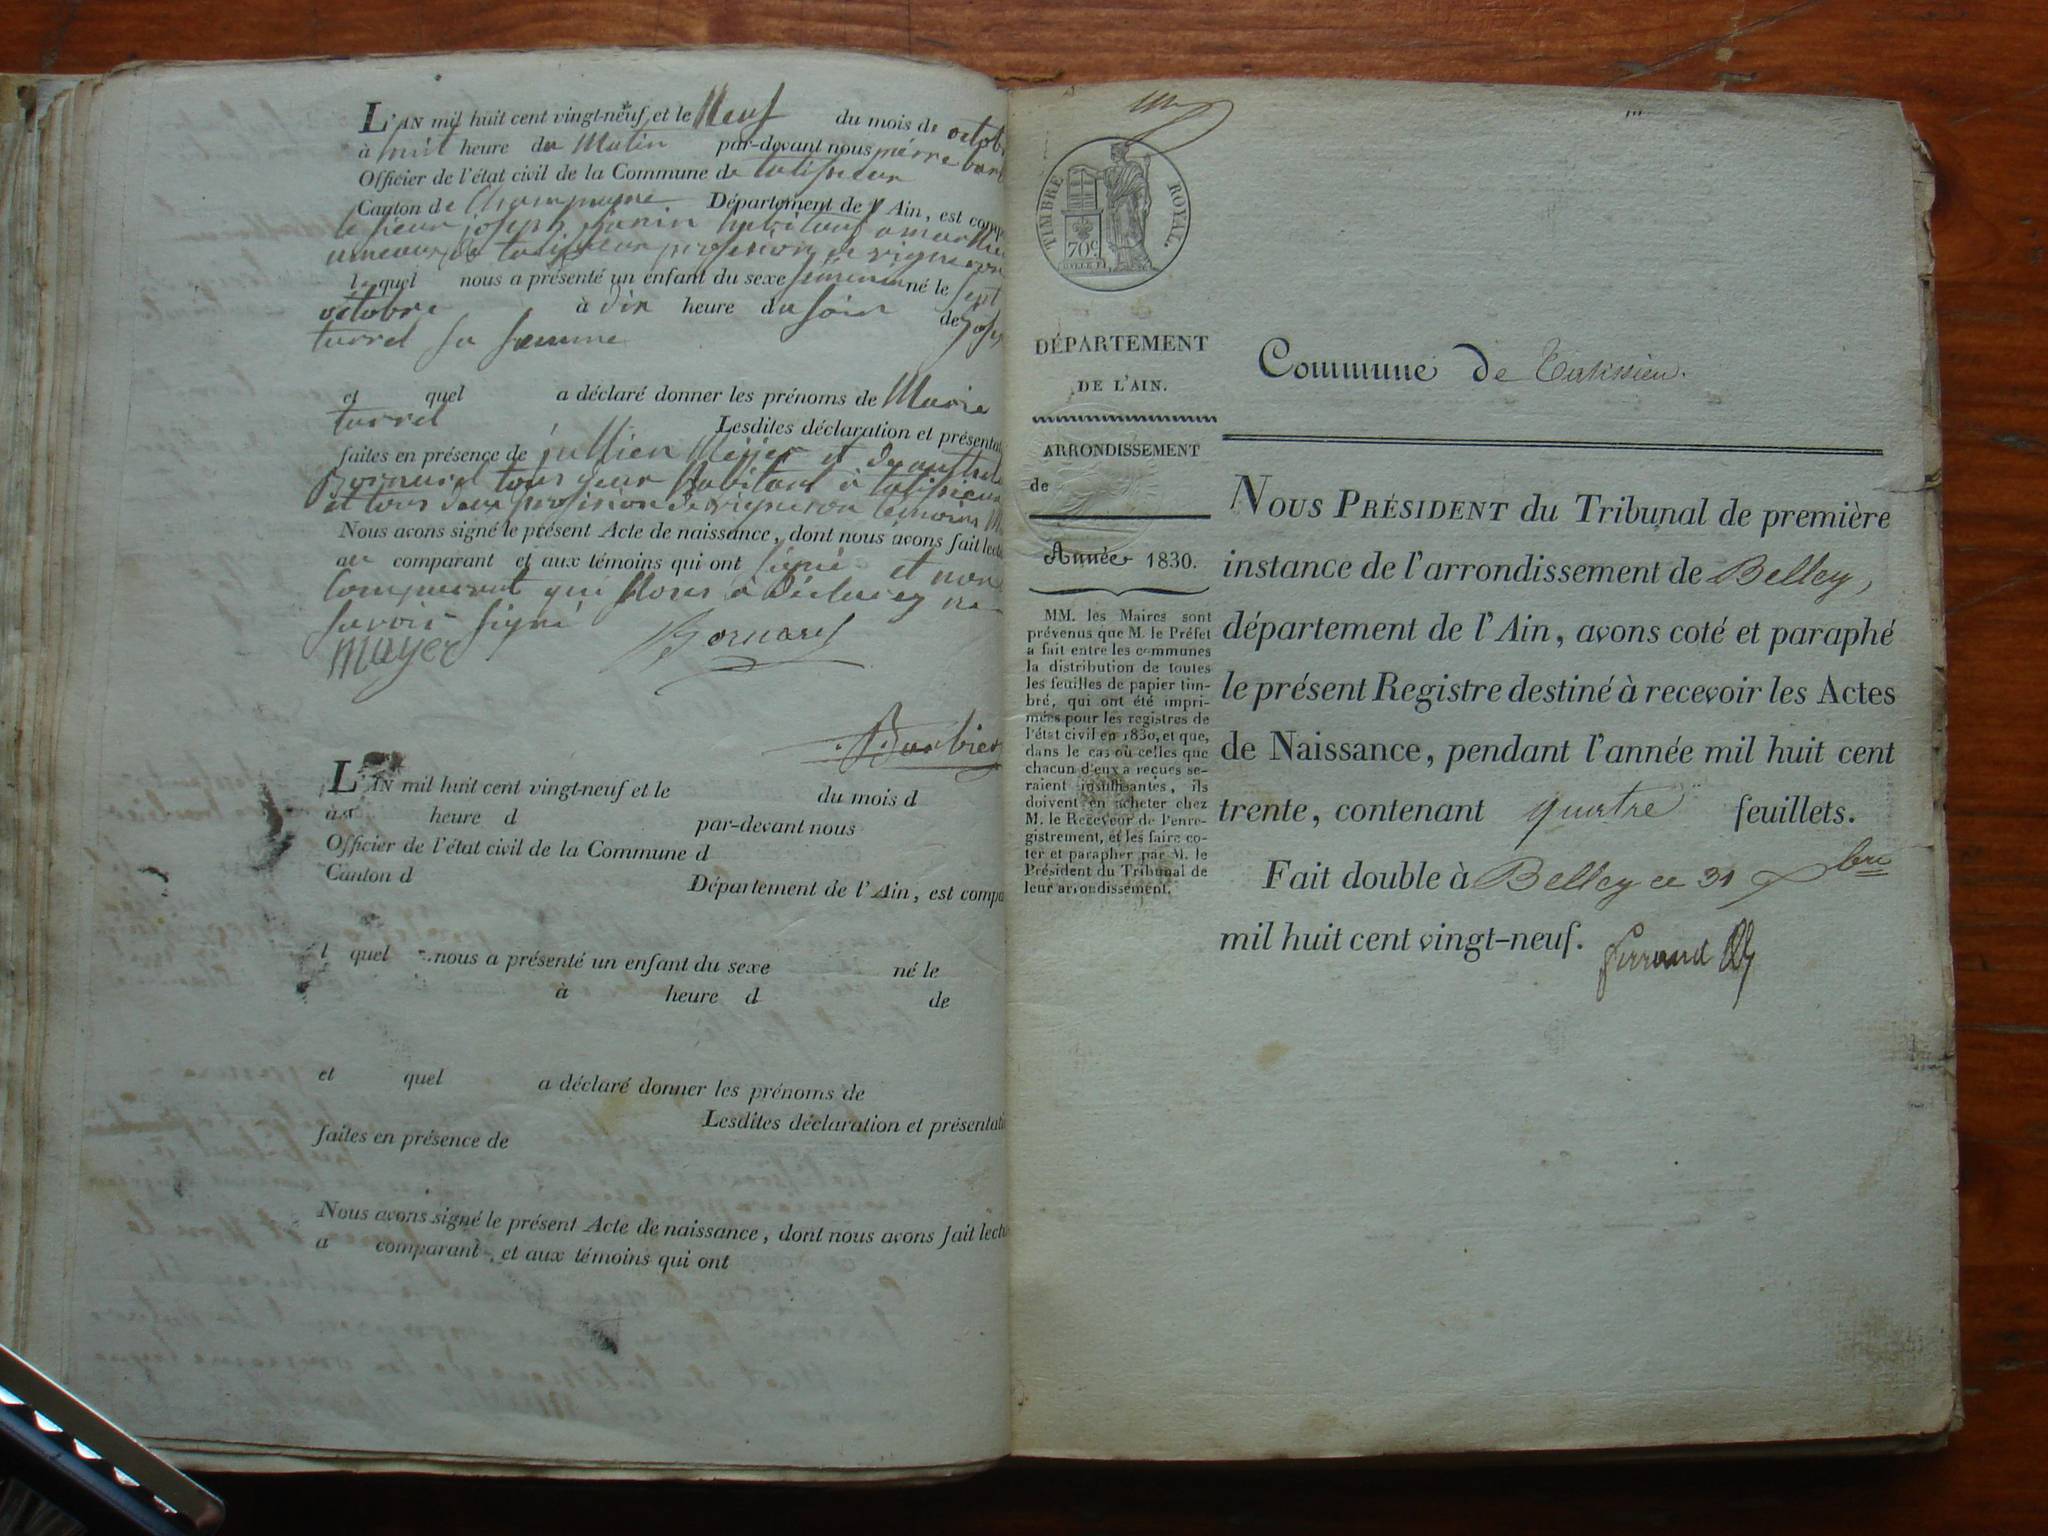 L'AN mil huit cent vingt-neuf, et le Neuf du mois de octob
à huit heure du Matin par-devant nous pierre barb
Officier de l'état civil de la Commune de talissieux
Canton de Champagne Département de l'Ain, est comp
le sieur joseph janin habitant a
de talissieux profession de vigneron
lequel nous a présenté un enfant du sexe feminin né le sept
octobre à dix heure du soir de
turrel sa femme
et quel a déclaré donner les prénoms de Marie
turrel Lesdites déclaration et présentat
faites en présence de jullien Meijer et de
Bornard tous deux habitant à talissieux
et tous deux profision de vigneron temoins
Nous avons signé le présent Acte de naissance, dont nous avons fait lectu
au comparant et aux témoins qui ont signé et non
Comparant qui Nous à déclarez ne
savoir signé
Mayer Bornard
Barbier
L'AN mil huit cent vingt-neuf et le du mois d
à heure d par-devant nous
Officier de l'état civil de la Commune d
Canton d Département de l'Ain, est compa
l quel nous a présenté un enfant du sexe né le
à heure d de
et quel a déclaré donner les prénoms de
Lesdites déclaration et présentati
faites en présence de
Nous avons signé le présent Acte de naissance, dont nous avons fait lectu
a comparant et aux témoins qui ont
TIMBRE ROYAL.
70c
DÉPARTEMENT
DE L'AIN.
ARRONDISSEMENT
de
Année 1830.
MM. les Maires sont
prévenus que M. le Préfet
a fait entre les communes
la distribution de toutes
les feuilles de papier tim-
bré, qui ont été impri-
mées pour les registres de
l'état civil en 1830, et que,
dans le cas où celles que
chacun d'eux a reçues se-
raient insuffisantes, ils
doivent en acheter chez
M. le Receveur de l'enre-
gistrement, et les faire co-
ter et parapher par M. le
Président du Tribunal de
leur arrondissement.
Commune de Talissieu.
NOUS PRÉSIDENT du Tribunal de première
instance de l'arrondissement de Belley,
département de l'Ain, avons coté et paraphé
le présent Registre destiné à recevoir les Actes
de Naissance, pendant l'année mil huit cent
trente, contenant quatre feuillets.
Fait double à Belley ce 31 Xbre
mil huit cent vingt-neuf.